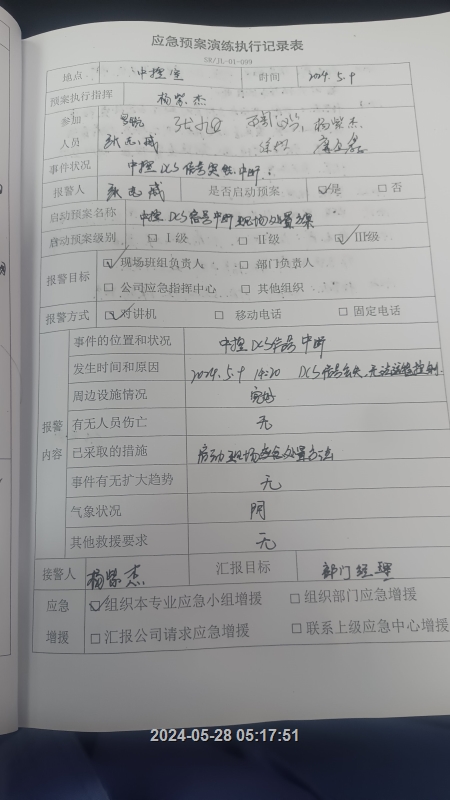 应急预案演练执行记录表
SR/JL-01-009
地点 中控室 时间 2024.5.9
预案执行指挥 杨紫杰
参加 杨紫杰
人员 张志斌
事件状况 中控DCS信号突然中断.
报警人 张志斌 是否启动预案 ☑是 □否
启动预案名称 中控DCS信号中断现场处置方案
启动预案级别 □Ⅰ级 □Ⅱ级 ☑Ⅲ级
报警目标 ☑现场班组负责人 □部门负责人
□公司应急指挥中心 □其他组织
报警方式 ☑对讲机 □移动电话 □固定电话
报警内容
事件的位置和状况 中控DCS信号中断
发生时间和原因 2024.5.9 14:20 DCS信号丢失,无法远程控制
周边设施情况 完好
有无人员伤亡 无
已采取的措施 启动现场应急处置方法
事件有无扩大趋势 无
气象状况 阴
其他救援要求 无
接警人 杨紫杰 汇报目标 部门经理
应急 ☑组织本专业应急小组增援 □组织部门应急增援
增援 □汇报公司请求应急增援 □联系上级应急中心增援
2024-05-28 05:17:51